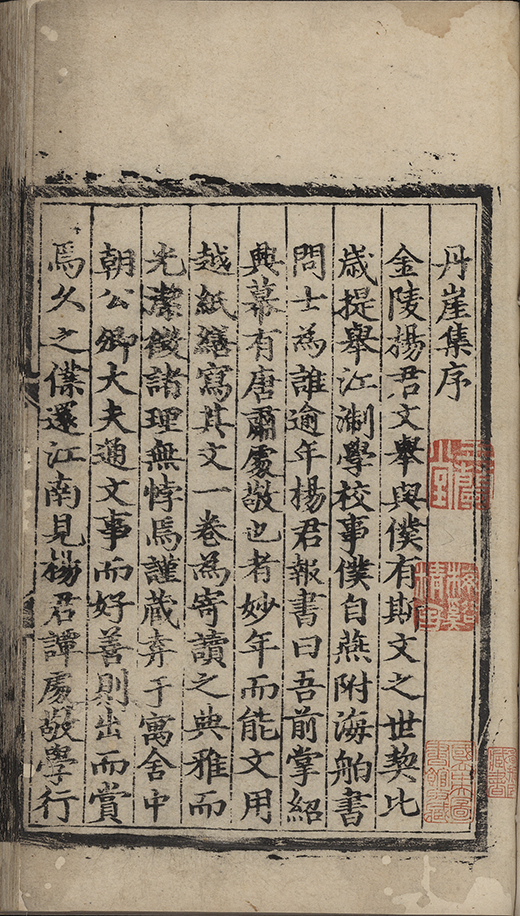 丹崖集序
金陵楊君文舉與僕有斯文之世契比
歲提舉江淛學校事僕自燕附海舶書
問士為誰逾年楊君報書曰吾前掌紹
興幕有唐肅處敬也者妙年而能文用
越紙繕寫其文一卷為寄讀之典雅而
光潔徴諸理無悖焉謹藏弆于寓舍中
朝公卿大夫通文事而好善則出而賞
焉久之僕還江南見楊君譚處敬學行
國立中央圖書館收藏